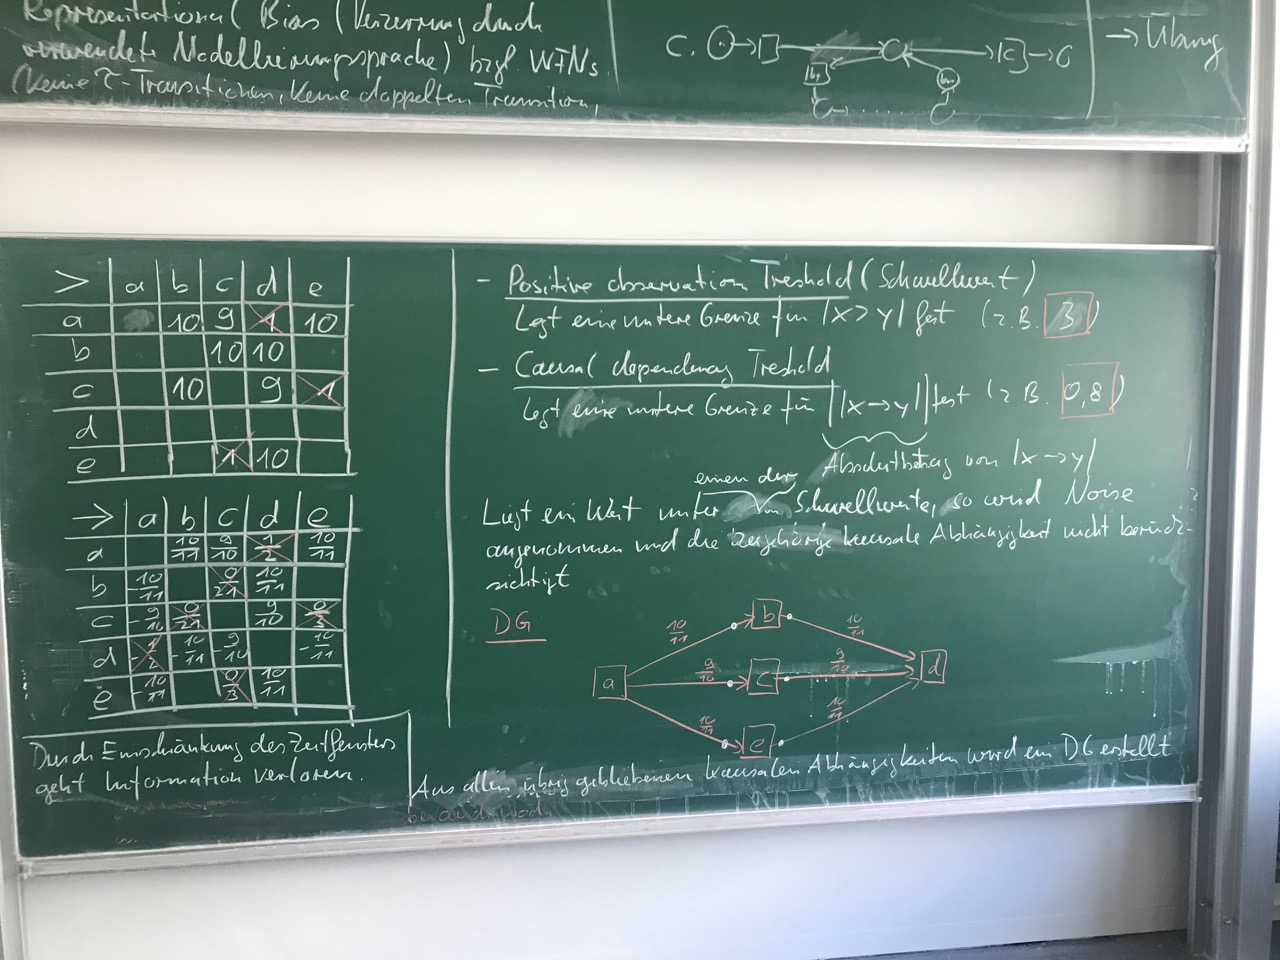 Representational Bias (Verzerrung durch
verwendete Modellierungssprache) bzgl. WFNs
(Keine τ-Transitionen, keine doppelten Transition,
C.
→ Übung
> a b c d e
a 10 9 1 10
b 10 10
c 10 9 1
d
e 1 10
→ a b c d e
a 10/11 9/10 1/2 10/11
b -10/11 0/21 10/11
c -9/10 0/21 9/10 0/3
d -1/2 -10/11 -9/10 -10/11
e -10/11 0/3 10/11
Durch Einschränkung des Zeitfensters
geht Information verloren.
- Positive observation Treshold (Schwellwert)
Legt eine untere Grenze für |x > y| fest (z.B. 3)
- Causal dependency Treshold
Legt eine untere Grenze für ||x → y|| fest (z.B. 0,8)
Absolutbetrag von |x → y|
einen der
Liegt ein Wert unter Schwellwerte, so wird Noise
angenommen und die zugehörige kausale Abhängigkeit nicht berück-
sichtigt
DG
10/11 b 10/11
a 9/10 c 9/10 d
10/11 e 10/11
Aus allen übrig gebliebenen kausalen Abhängigkeiten wird ein DG erstellt